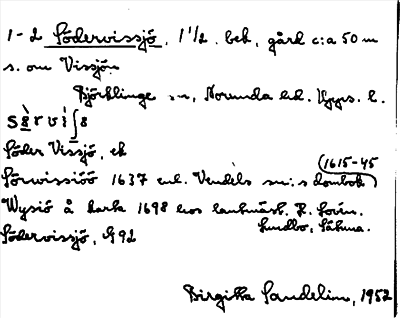 1-2 Södervissjö, 1 1/2 bek, gård c:a 50 m
s. om Vissjön
Björklinge sn, Norunda hd. Upps. l.
Söder Vissjö, ek
Sörwissiöö 1637 enl. Vendels sn:s dombok (1615-45)
Wysiö å karta 1698 hos lantmäst. R. Sorin.
Lundbo, Sätuna.
Södervissjö, G92
Birgitta Sandelin, 1952